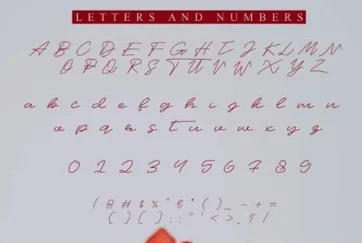 LETTERS AND NUMBERS
A B C D E F G H I J K L M N
O P Q R S T U V W X Y Z
a b c d e f g h i j k l m n
o p q r s t u v w x y z
0 1 2 3 4 5 6 7 8 9
( @ # $ % " & * ( ) _ - + =
{ } [ ] : ; " ' < > , ? /